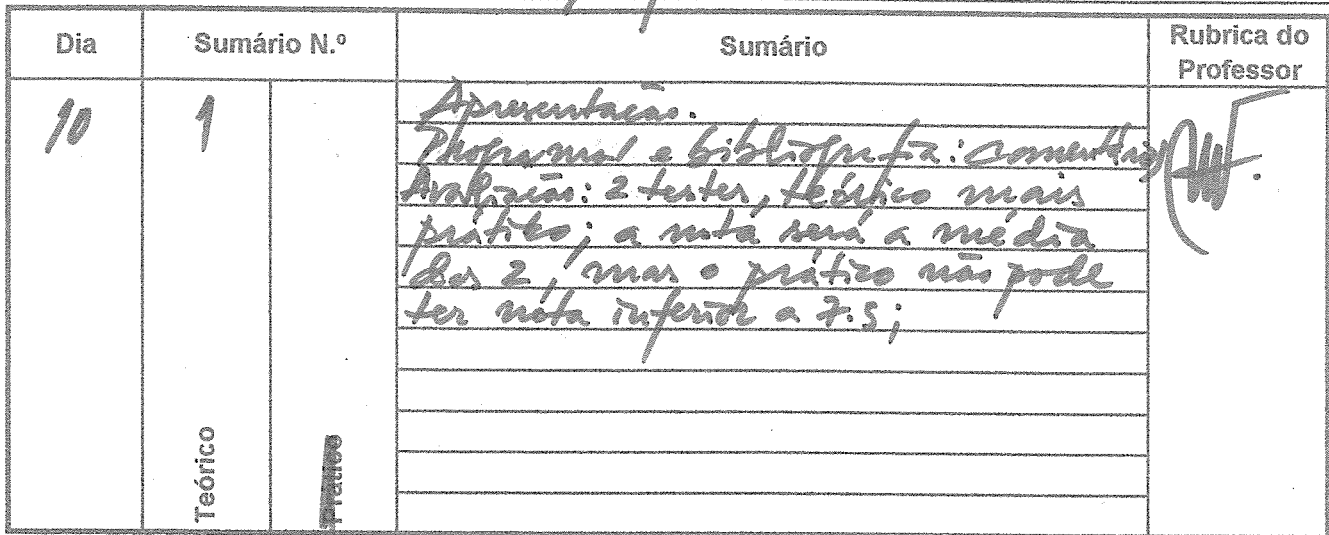 Dia Sumário N.º Sumário Rubrica do Professor
10 1 Apresentação.
Programa e bibliografia: comentários
Avaliação: 2 testes, teórico mais
prático; a nota será a média
dos 2, mas o prático não pode
ter nota inferior a 7.5;
Teórico
Prático